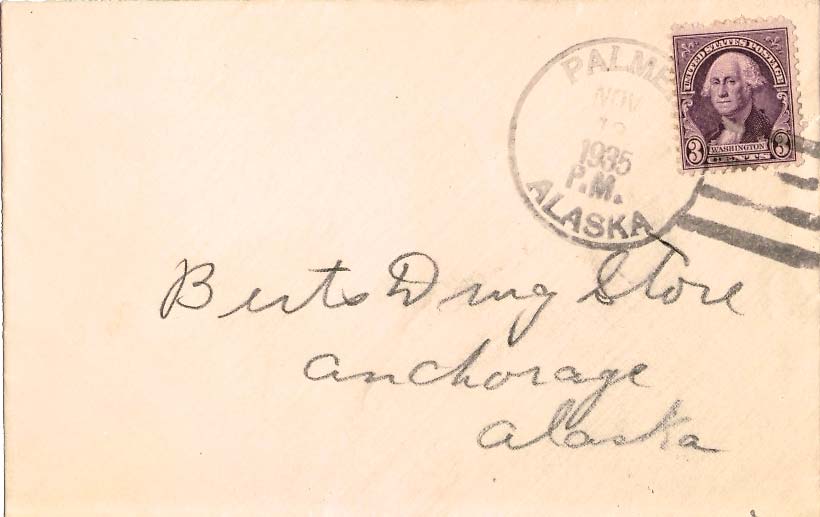 PALMER
NOV
1935
P.M.
ALASKA
UNITED STATES POSTAGE
3 WASHINGTON 3
CENTS
Berts Drug Store
Anchorage
Alaska